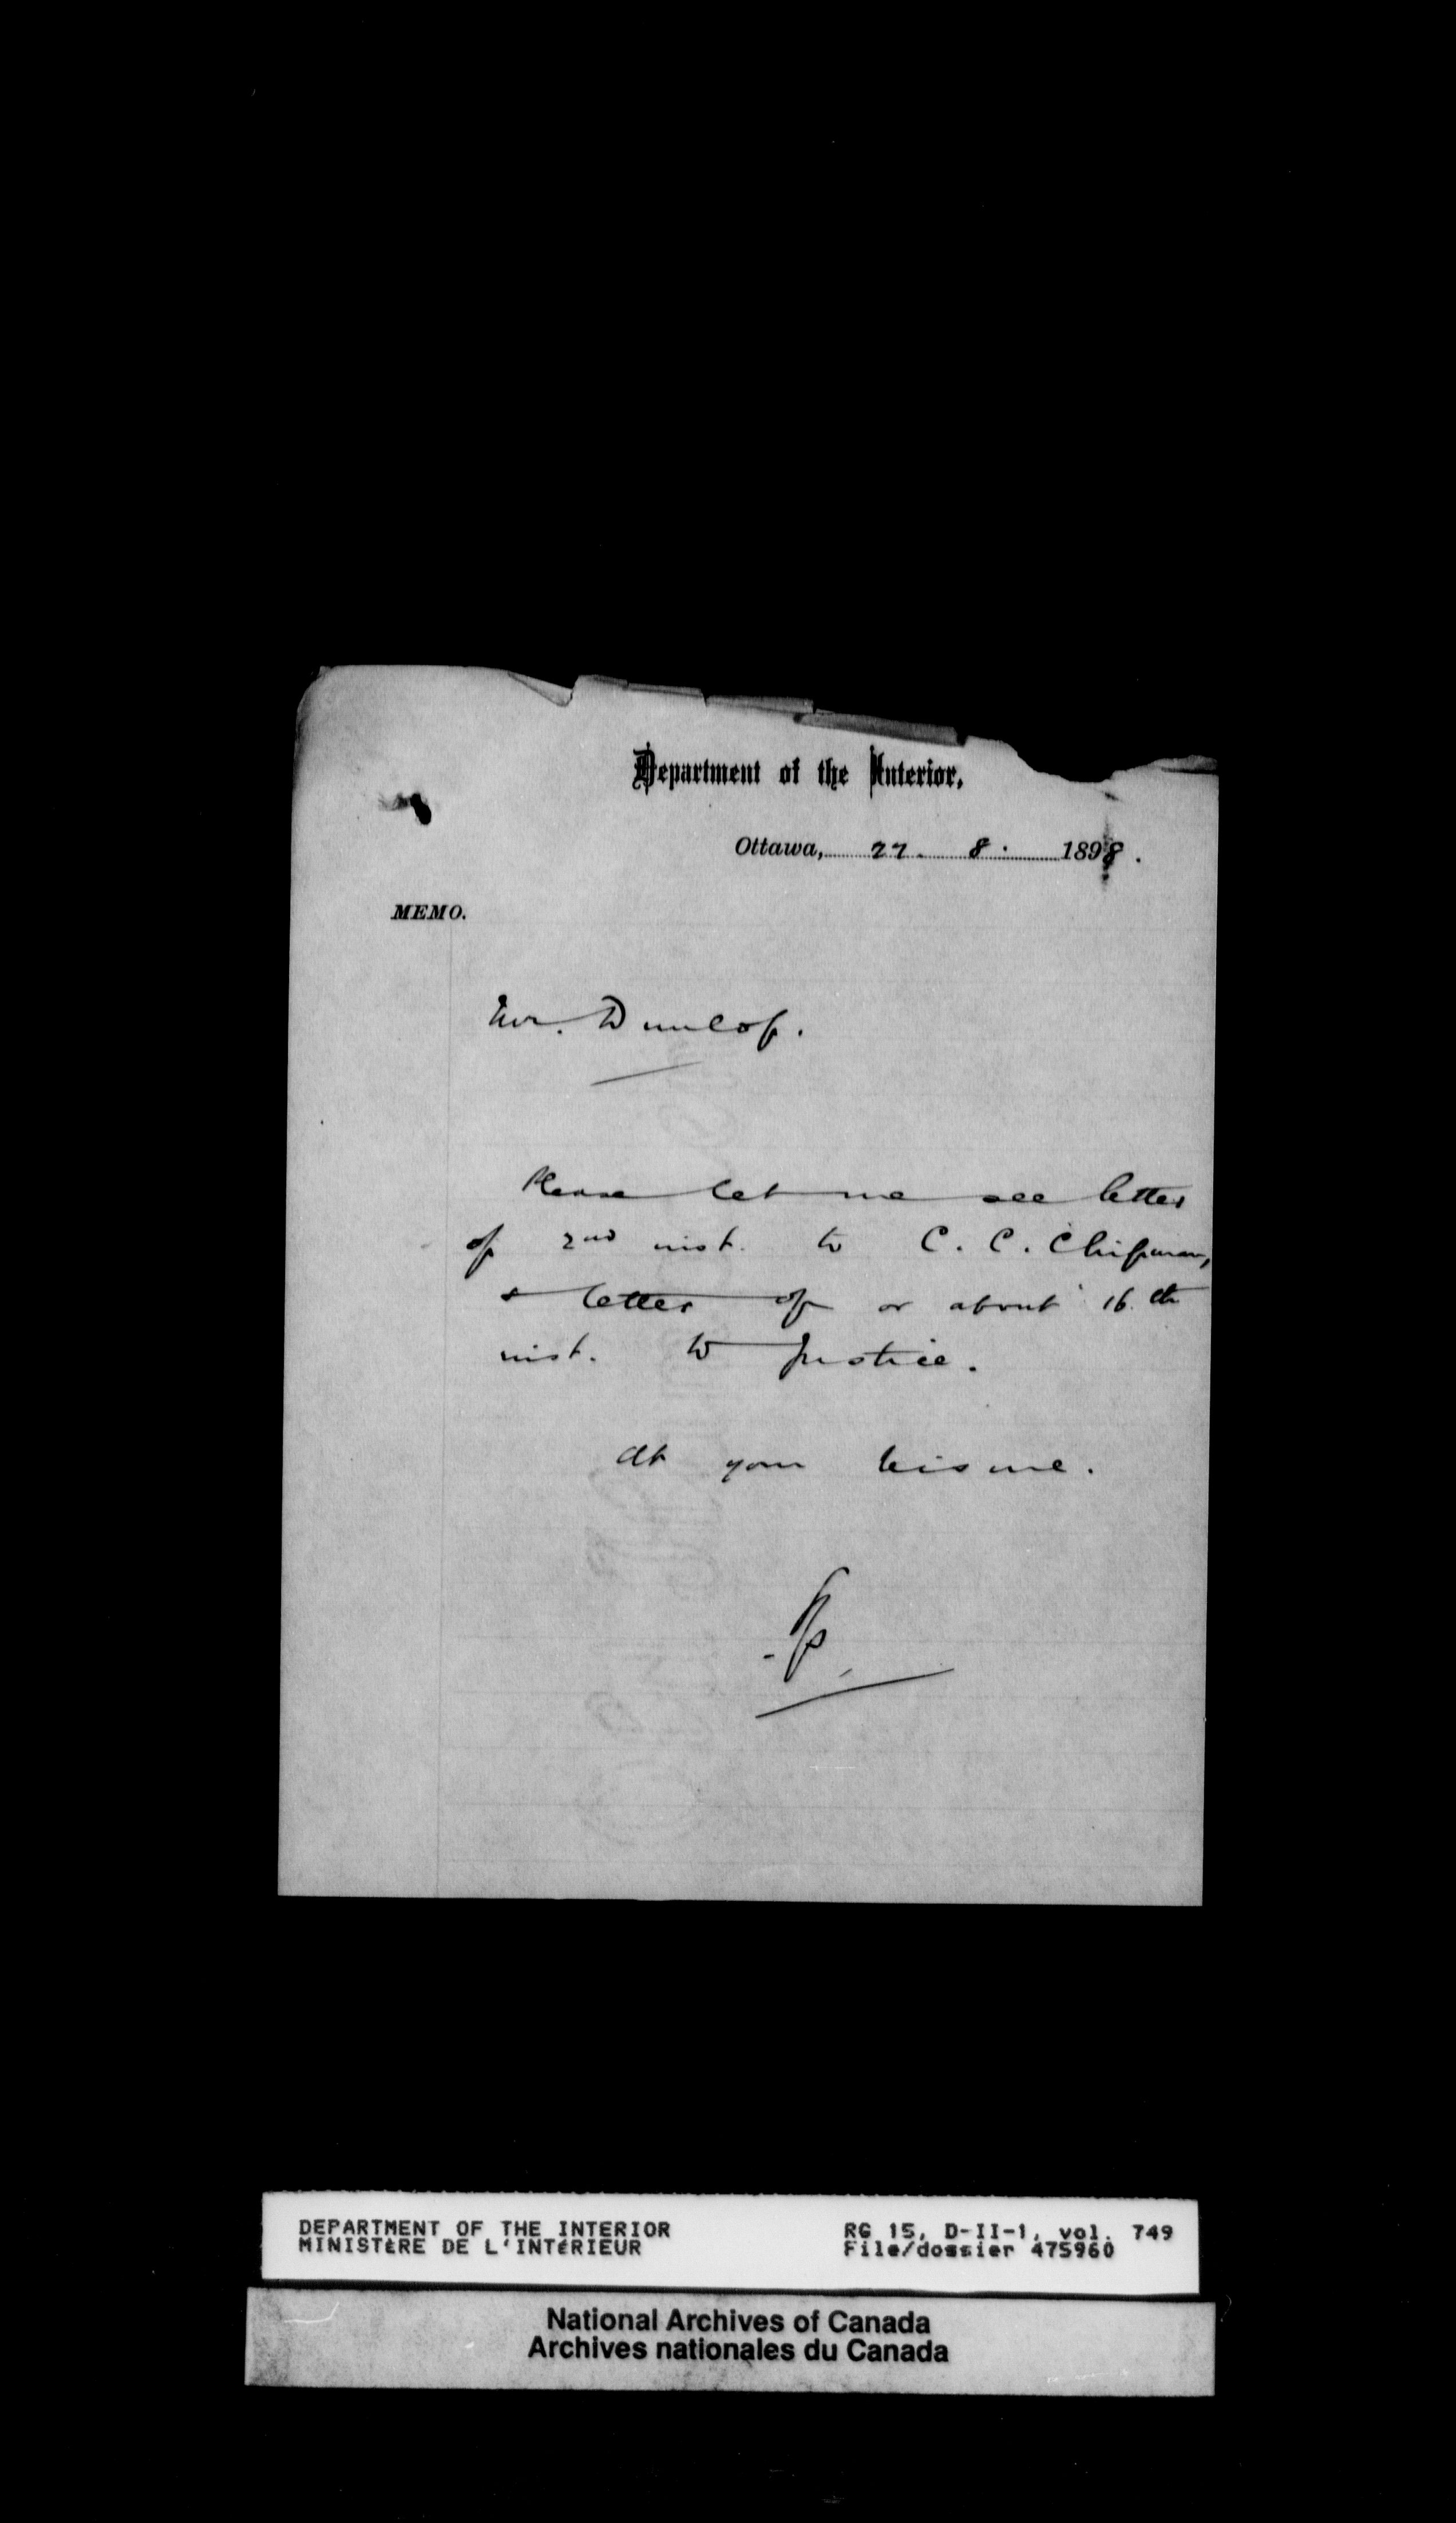 Department of the Interior,
Ottawa, 22. 8. 1898.
MEMO.
Mr. Dunlop.
Please let me see letter
of 2nd inst. to C. C. Chipman,
& letter of or about 16th
inst. to Justice.
At your leisure.
DEPARTMENT OF THE INTERIOR
MINISTÈRE DE L'INTÉRIEUR
RG 15, D-II-1, vol. 749
File/dossier 475960
National Archives of Canada
Archives nationales du Canada